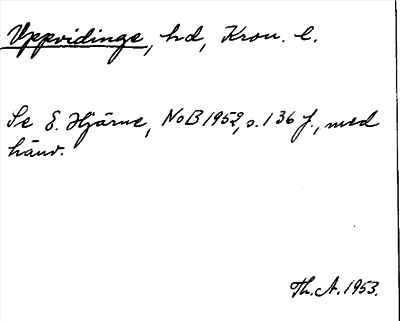 Uppvidinge, hd, Kron. l.
Se E. Hjärne, NoB 1952, s. 136 f., med
hänv.
Th. A. 1953.